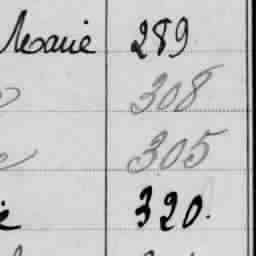 Marie 289
308
305
320.